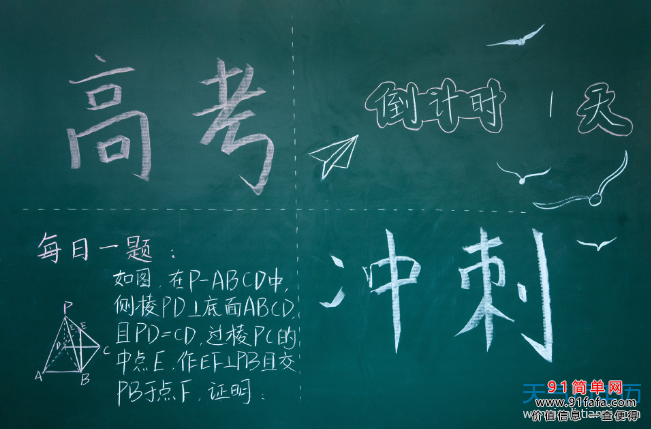 高考
倒计时 1 天
每日一题：
如图，在P-ABCD中，
侧棱PD⊥底面ABCD，
且PD=CD，过棱PC的
中点E，作EF⊥PB且交
PB于点F，证明：
P
E
D
C
A
B
冲刺
91简单网
www.91fafa.com
价值信息 一查便得